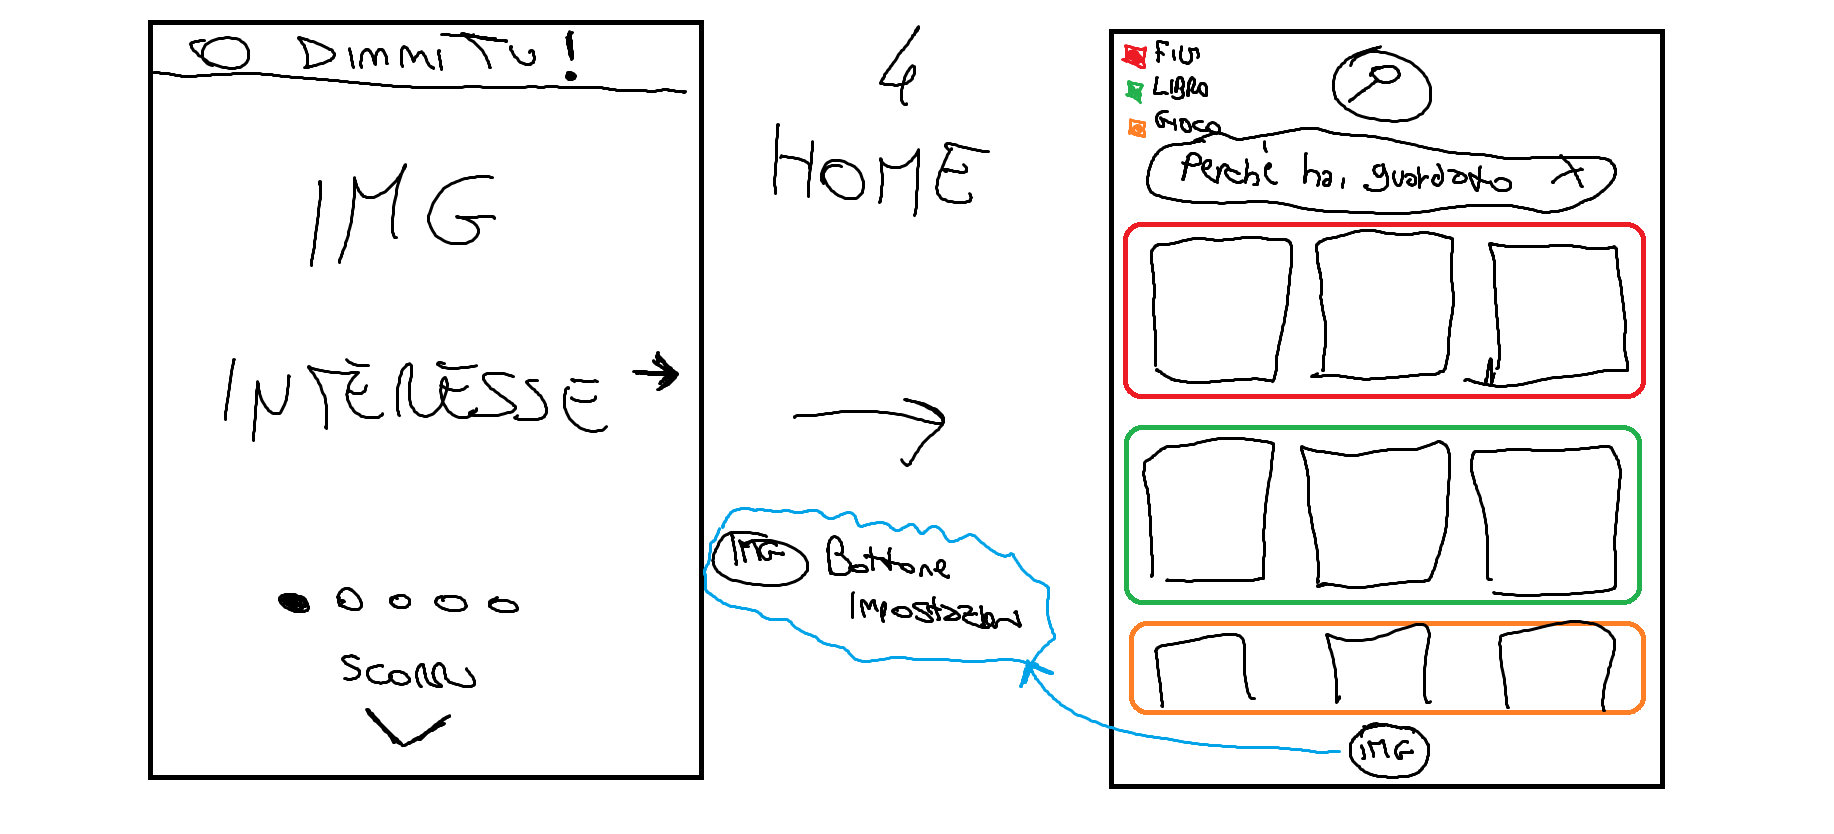 DIMMI TU!
IMG
INTERESSE
SCORRI
4
HOME
IMG Bottone
Impostazioni
FILM
LIBRO
GIOCO
Perché hai guardato X
IMG